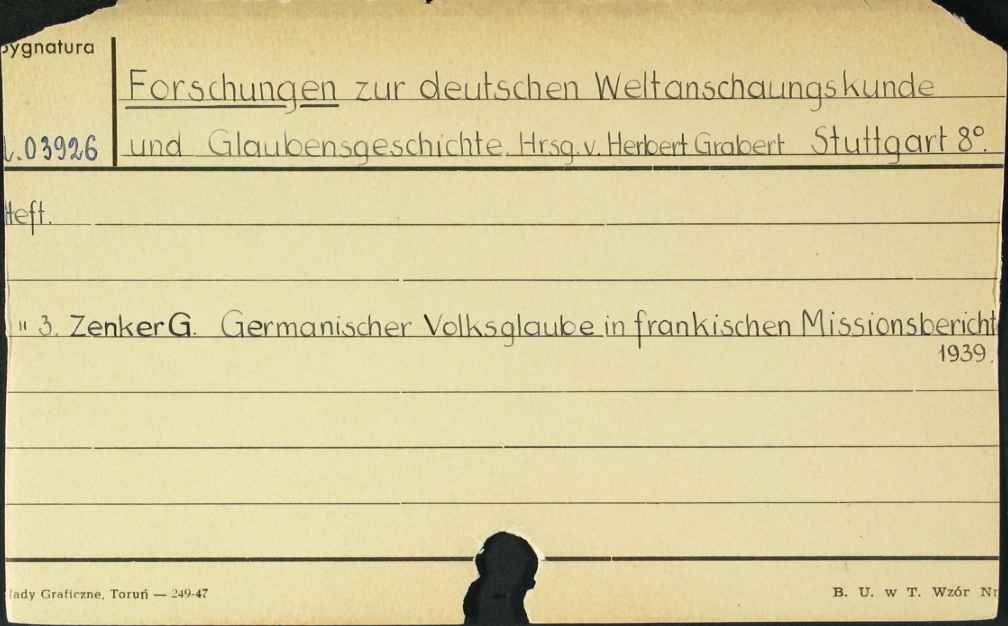 Sygnatura
Forschungen zur deutschen Weltanschaungskunde
.03926 und Glaubensgeschichte. Hrsg. v. Herbert Grabert Stuttgart 8º.
Heft.
" 3. Zenker G. Germanischer Volksglaube in frankischen Missionsbericht
1939.
łady Graficzne, Toruń — 249-47
B. U. w T. Wzór Nr